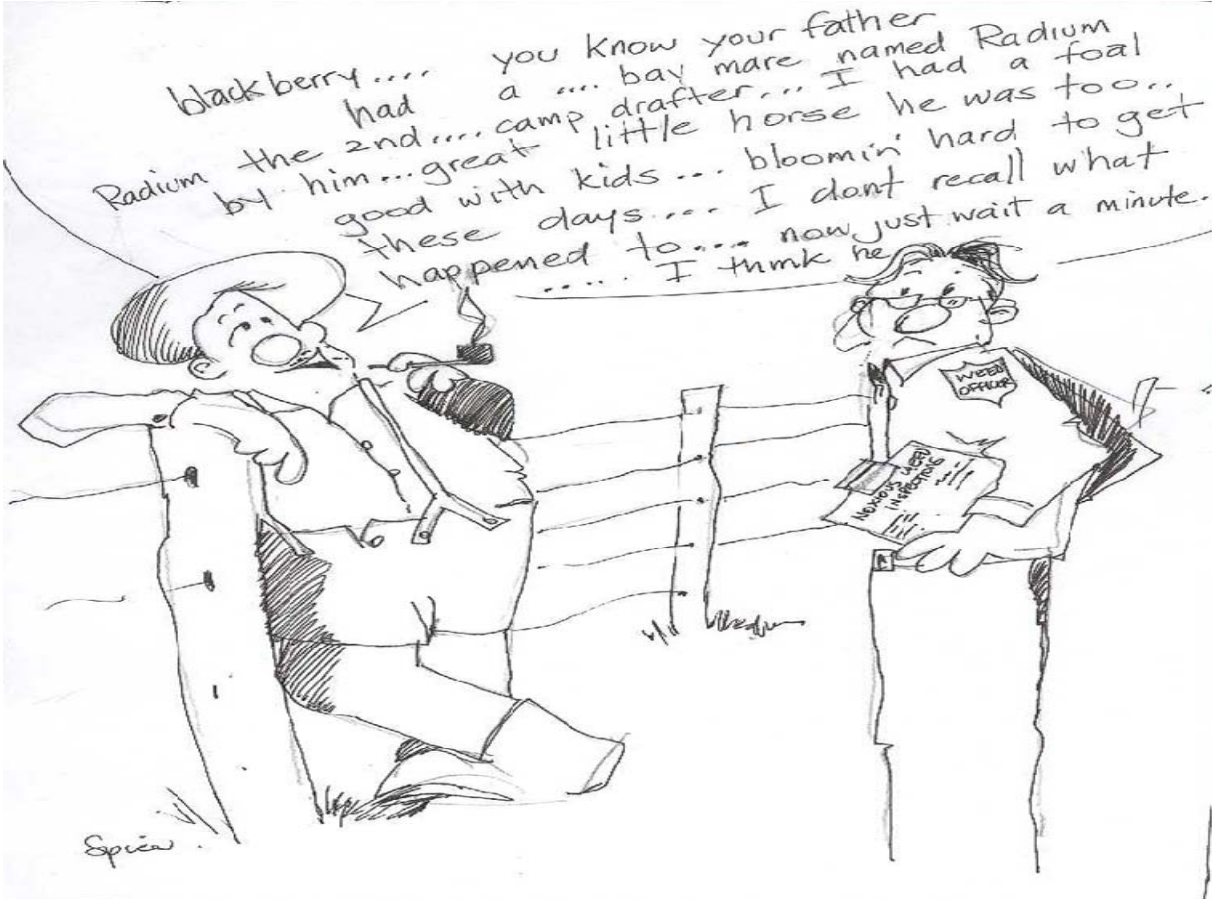 blackberry.... you know your father
had a .... bay mare named Radium
Radium the 2nd.... camp drafter... I had a foal
by him... great little horse he was too..
good with kids... bloomin' hard to get
these days.... I dont recall what
happened to.... now just wait a minute.
..... I think he
WEED
OFFICER
NOXIOUS WEED
INSPECTIONS